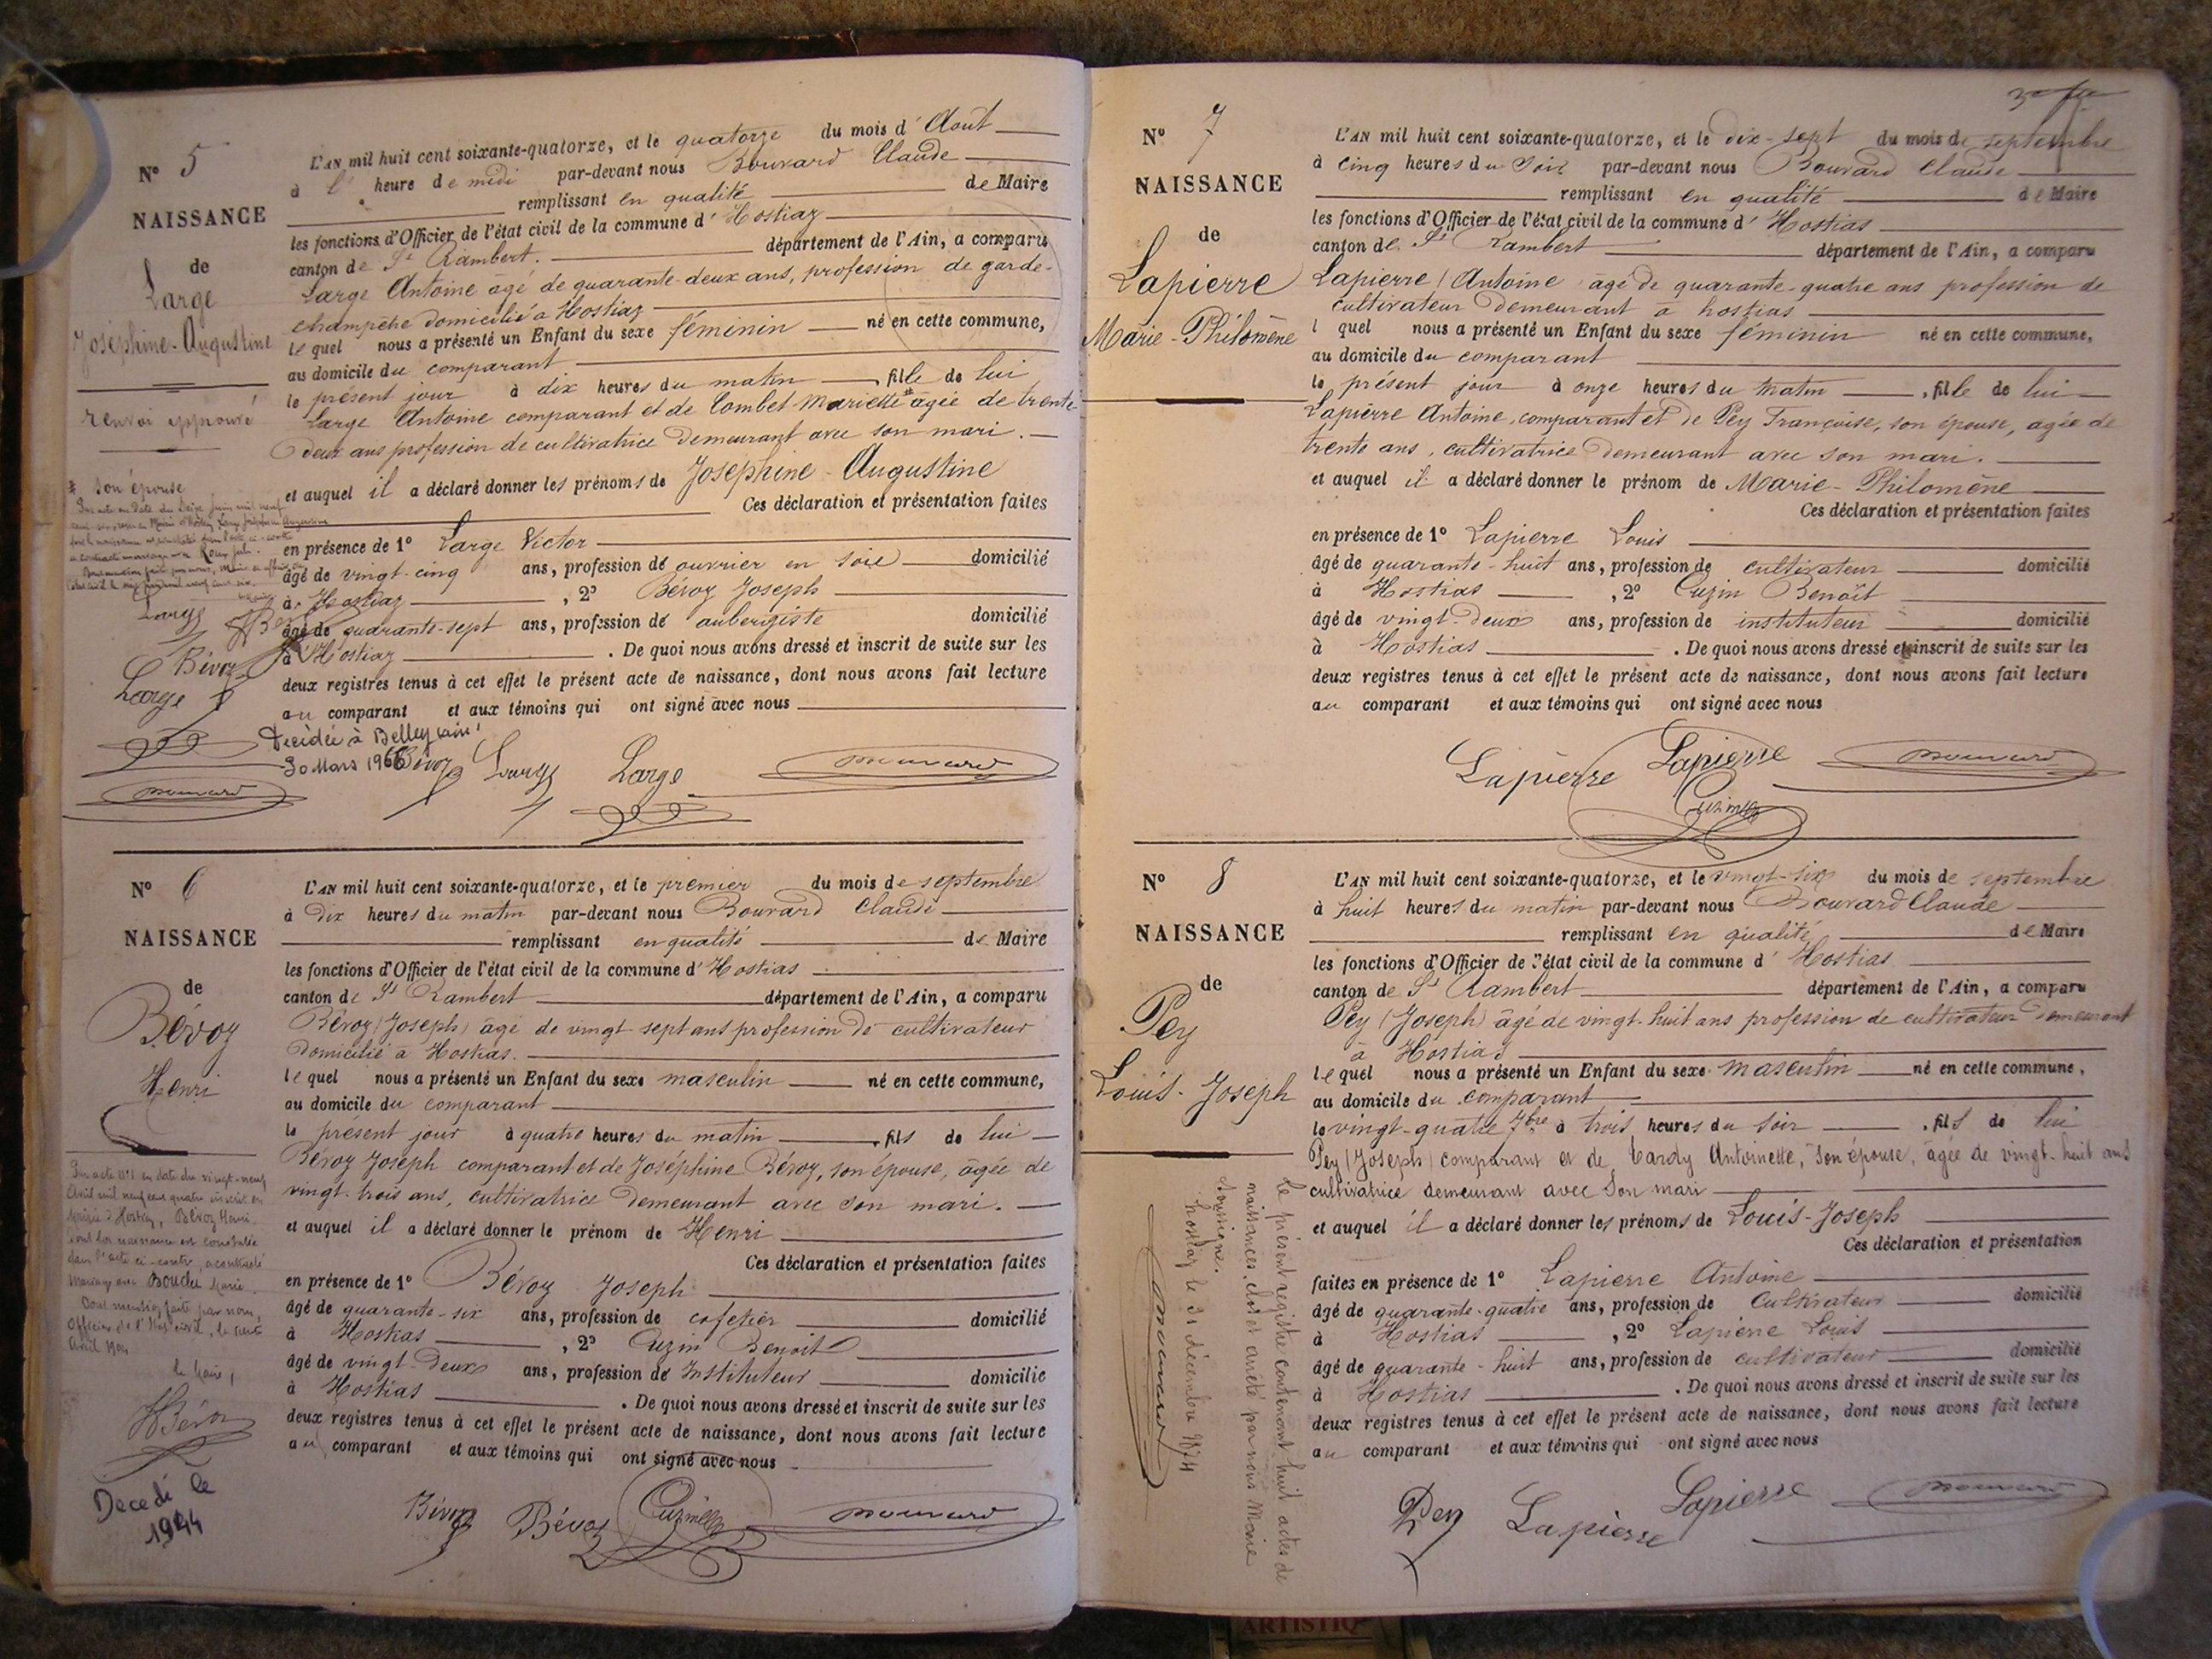 N° 5
NAISSANCE
de
Large
Joséphine-Augustine
renvoi approuvé
* son épouse
Large
Bévoz
Large
Décédée à Belley (Ain)
30 Mars 1966
L'AN mil huit cent soixante-quatorze, et le quatorze du mois d'Aout
à l' heure de midi par-devant nous Bouvard Claude
remplissant en qualité de Maire
les fonctions d'Officier de l'état civil de la commune d'Hostiaz
canton de St Rambert. département de l'Ain, a comparu
Large Antoine âgé de quarante-deux ans, profession de garde-
champêtre domicilié à Hostiaz
lequel nous a présenté un Enfant du sexe féminin né en cette commune,
au domicile du comparant
le présent jour à dix heures du matin, fille de lui
Large Antoine comparant et de Combet Mariette * âgée de trente
deux ans profession de cultivatrice demeurant avec son mari.
et auquel il a déclaré donner les prénoms de Joséphine-Augustine
Ces déclaration et présentation faites
en présence de 1° Large Victor
âgé de vingt-cinq ans, profession de ouvrier en soie domicilié
à Hostiaz, 2° Bévoz Joseph
âgé de quarante-sept ans, profession de aubergiste domicilié
à Hostiaz. De quoi nous avons dressé et inscrit de suite sur les
deux registres tenus à cet effet le présent acte de naissance, dont nous avons fait lecture
au comparant et aux témoins qui ont signé avec nous
Bévoz Large Large Bouvard
N° 6
NAISSANCE
de
Bévoz
Henri
Sur acte n°1 en date du vingt-neuf
Avril mil neuf cent quatre inscrit en
mairie d'Hostiaz, Bévoz Henri
dont la naissance est constatée
dans l'acte ci-contre, a contracté
mariage avec Bouclu Marie.
Dont mention faite par nous,
Officier de l'Etat civil, le trente
Avril 1904
le Maire,
HBévoz
Decedé le
1944
L'AN mil huit cent soixante-quatorze, et le premier du mois de septembre
à dix heures du matin par-devant nous Bouvard Claude
remplissant en qualité de Maire
les fonctions d'Officier de l'état civil de la commune d'Hostias
canton de St Rambert département de l'Ain, a comparu
Bévoz (Joseph) âgé de vingt-sept ans profession de cultivateur
domicilié à Hostias.
lequel nous a présenté un Enfant du sexe masculin né en cette commune,
au domicile du comparant
le présent jour à quatre heures du matin, fils de lui
Bévoz Joseph comparant et de Joséphine Bévoz, son épouse, âgée de
vingt-trois ans, cultivatrice demeurant avec son mari.
et auquel il a déclaré donner le prénom de Henri
Ces déclaration et présentation faites
en présence de 1° Bévoz Joseph
âgé de quarante-six ans, profession de cafetier domicilié
à Hostias, 2° Cuzin Benoit
âgé de vingt-deux ans, profession de Instituteur domicilié
à Hostias. De quoi nous avons dressé et inscrit de suite sur les
deux registres tenus à cet effet le présent acte de naissance, dont nous avons fait lecture
au comparant et aux témoins qui ont signé avec nous
Bévoz Bévoz Cuzin Bouvard
N° 7
NAISSANCE
de
Lapierre
Marie-Philomène
L'AN mil huit cent soixante-quatorze, et le dix-sept du mois de septembre
à cinq heures du soir par-devant nous Bouvard Claude
remplissant en qualité de Maire
les fonctions d'Officier de l'état civil de la commune d'Hostias
canton de St Rambert département de l'Ain, a comparu
Lapierre (Antoine âgé de quarante-quatre ans profession de
cultivateur demeurant à hostias
l quel nous a présenté un Enfant du sexe féminin né en cette commune,
au domicile du comparant
le présent jour à onze heures du matin, fille de lui
Lapierre Antoine, comparant et de Pey Françoise, son épouse, agée de
trente ans, cultivatrice demeurant avec son mari.
et auquel il a déclaré donner le prénom de Marie-Philomène
Ces déclaration et présentation faites
en présence de 1° Lapierre Louis
âgé de quarante-huit ans, profession de cultivateur domicilié
à Hostias, 2° Cuzin Benoît
âgé de vingt-deux ans, profession de instituteur domicilié
à Hostias. De quoi nous avons dressé et inscrit de suite sur les
deux registres tenus à cet effet le présent acte de naissance, dont nous avons fait lecture
au comparant et aux témoins qui ont signé avec nous
Lapierre Lapierre Bouvard
Cuzin
N° 8
NAISSANCE
de
Pey
Louis-Joseph
Le présent registre contenant huit actes de
naissances, clos et arrêté par nous Maire
soussigné.
hostiaz le 31 décembre 1874
Bouvard
L'AN mil huit cent soixante-quatorze, et le vingt-six du mois de septembre
à huit heures du matin par-devant nous Bouvard Claude
remplissant en qualité de Maire
les fonctions d'Officier de l'état civil de la commune d'Hostias
canton de St Rambert département de l'Ain, a comparu
Pey (Joseph) âgé de vingt-huit ans profession de cultivateur demeurant
à Hostias
lequel nous a présenté un Enfant du sexe masculin né en cette commune,
au domicile du comparant
le vingt-quatre 7bre à trois heures du soir, fils de lui
Pey (Joseph) comparant et de Cardy Antoinette, son épouse, âgée de vingt-huit ans
cultivatrice demeurant avec son mari
et auquel il a déclaré donner les prénoms de Louis-Joseph
Ces déclaration et présentation
faites en présence de 1° Lapierre Antoine
âgé de quarante-quatre ans, profession de Cultivateur domicilié
à Hostias, 2° Lapierre Louis
âgé de quarante-huit ans, profession de cultivateur domicilié
à Hostias. De quoi nous avons dressé et inscrit de suite sur les
deux registres tenus à cet effet le présent acte de naissance, dont nous avons fait lecture
au comparant et aux témoins qui ont signé avec nous
Pey Lapierre Lapierre Bouvard
ARTISTIQ